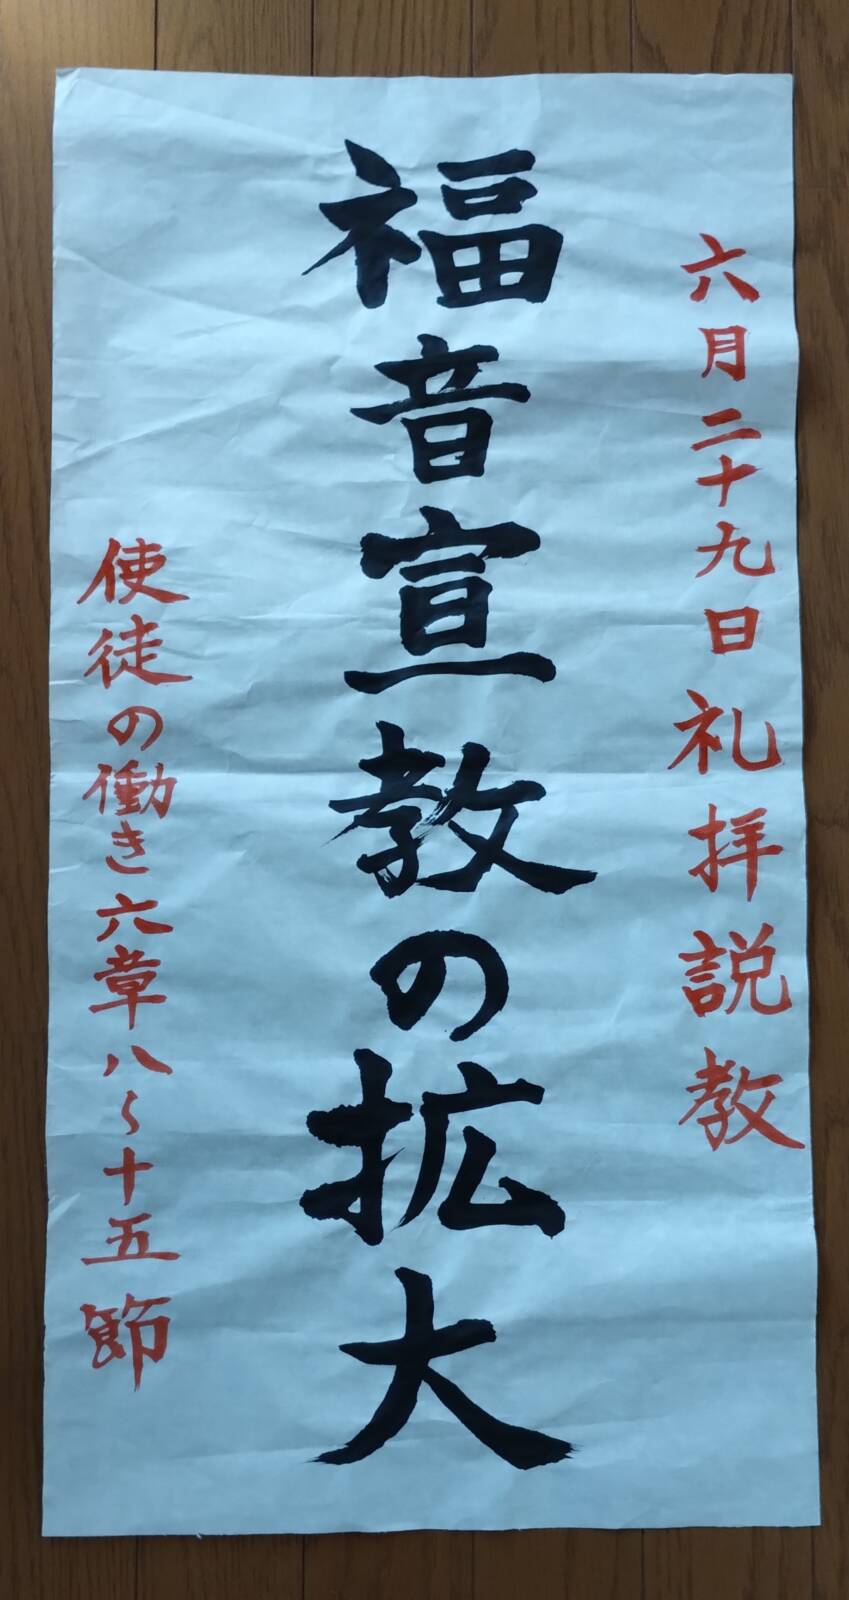 六月二十九日礼拝説教
福音宣教の拡大
使徒の働き六章八〜十五節